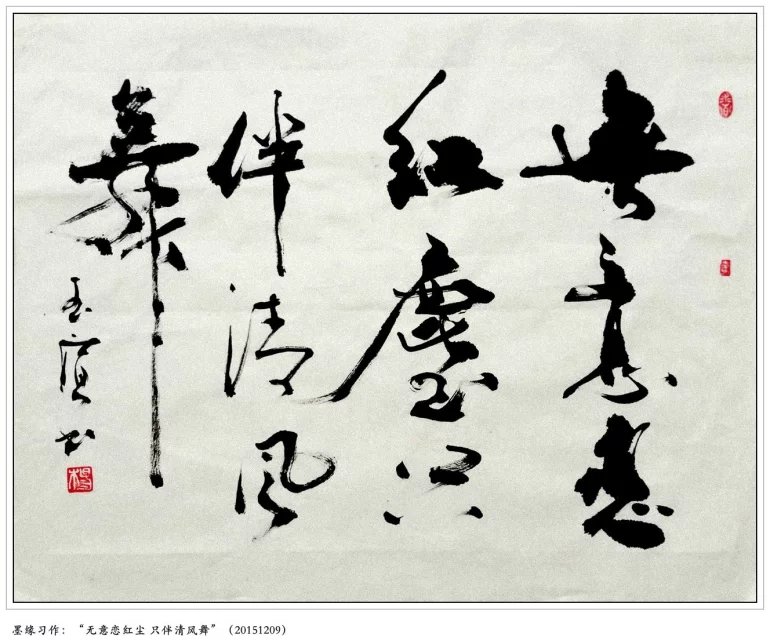 無意恋
红塵只
伴清風
舞
墨缘习作：“无意恋红尘 只伴清风舞”（20151209）